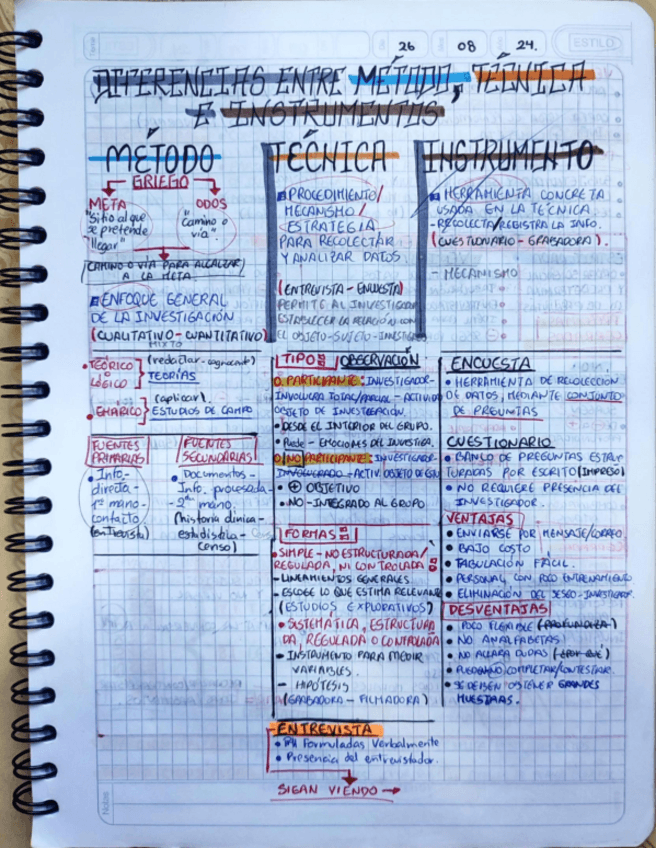 26 08 24.
ESTILO
DIFERENCIAS ENTRE MÉTODO, TÉCNICA
E INSTRUMENTOS
MÉTODO
GRIEGO
META
"Sitio al que
se pretende
llegar"
ODOS
"Camino o
vía"
CAMINO O VÍA PARA ALCALZAR
A LA META
ENFOQUE GENERAL
DE LA INVESTIGACIÓN
(CUALITATIVO - CUANTITATIVO)
MIXTO
• TEÓRICO
O
LÓGICO
(redactar - cognoscente)
TEORÍAS
• EMPÍRICO
(aplicar)
ESTUDIOS DE CAMPO
FUENTES
PRIMARIAS
• Info.
directa -
1ª mano -
contacto
(entrevista)
FUENTES
SECUNDARIAS
• Documentos -
Info. procesada -
2ª mano.
(historia clínica -
estadística -
censo)
TÉCNICA
PROCEDIMIENTO/
MECANISMO/
ESTRATEGIA
PARA RECOLECTAR
Y ANALIZAR DATOS.
(ENTREVISTA - ENCUESTA)
PERMITE AL INVESTIGADOR
ESTABLECER LA RELACIÓN CON
EL OBJETO - SUJETO - INVESTIG
TIPOS OBSERVACIÓN
O. PARTICIPANTE: INVESTIGADOR -
INVOLUCRA TOTAL/PARCIAL - ACTIVID
OBJETO DE INVESTIGACIÓN.
• DESDE EL INTERIOR DEL GRUPO.
• Puede - EMOCIONES DEL INVESTIGA.
O. NO PARTICIPANTE: INVESTIGADOR-
INVOLUCRADO - ACTIV. OBJETO DE
• + OBJETIVO
• NO - INTEGRADO AL GRUPO
FORMAS
• SIMPLE - NO ESTRUCTURADA/
REGULADA, NI CONTROLADA
- LINEAMIENTOS GENERALES
- ESCOGE LO QUE ESTIMA RELEVANTE
(ESTUDIOS EXPLORATIVOS)
• SISTEMÁTICA, ESTRUCTURA
DA, REGULADA O CONTROLADA
- INSTRUMENTO PARA MEDIR
VARIABLES.
- HIPÓTESIS
(GRABADORA - FILMADORA)
ENTREVISTA
• Formuladas verbalmente
• Presencia del entrevistador.
SIGAN VIENDO →
INSTRUMENTO
HERRAMIENTA CONCRETA
USADA EN LA TÉCNICA
- RECOLECTA/REGISTRA LA INFO.
(CUESTIONARIO - GRABADORA).
- MECANISMO
ENCUESTA
• HERRAMIENTA DE RECOLECCIÓN
DE DATOS, MEDIANTE CONJUNTO
DE PREGUNTAS
CUESTIONARIO
• BANCO DE PREGUNTAS ESTRUC
TURADAS POR ESCRITO (IMPRESO)
• NO REQUIERE PRESENCIA DEL
INVESTIGADOR.
VENTAJAS
• ENVIARSE POR MENSAJE/CORREO.
• BAJO COSTO
• TABULACIÓN FÁCIL.
• PERSONAL, CON POCO ENTRENAMIENTO
• ELIMINACIÓN DEL SESGO - INVESTIGADOR.
DESVENTAJAS
• POCO FLEXIBLE (PROFUNDIZA)
• NO ANALFABETAS
• NO ACLARA DUDAS (¿POR QUÉ)
• PUEDEN NO COMPLETAR/CONTESTAR.
• SE DEBEN OBTENER GRANDES
MUESTRAS.
Notes